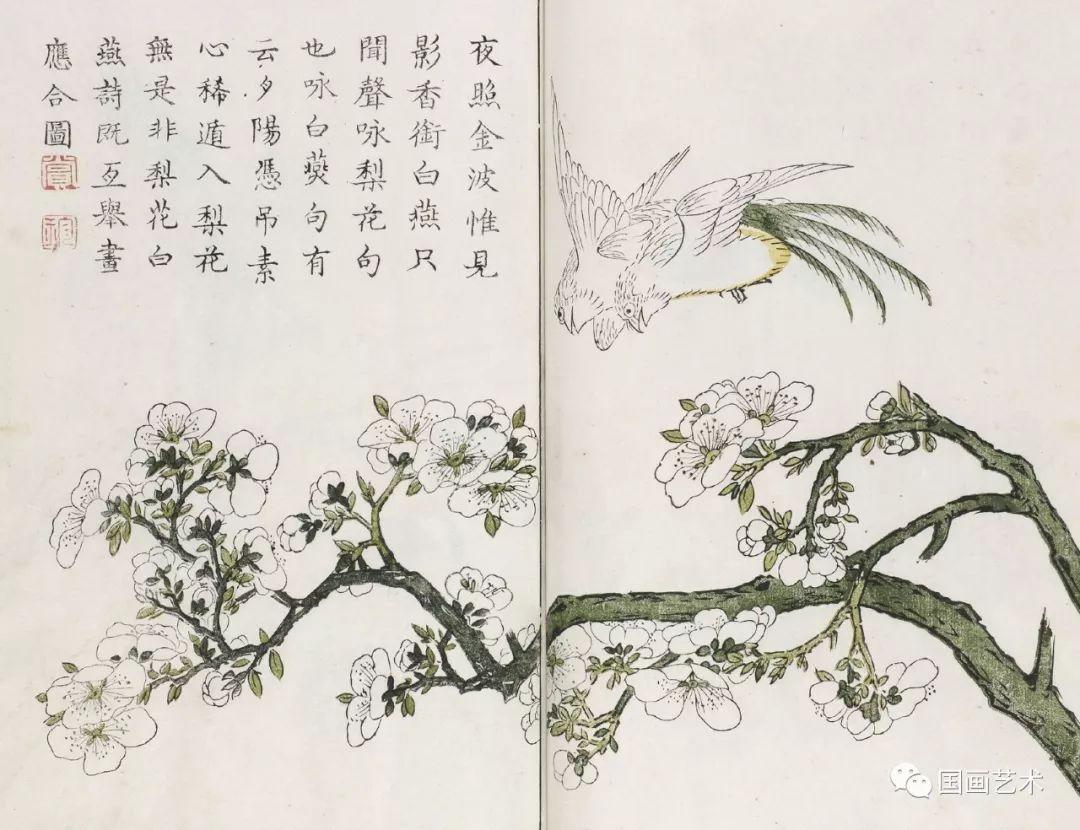 夜照金波惟見
影香銜白燕只
聞聲咏梨花句
也咏白燕句有
云夕陽憑吊素
心稀遁入梨花
無是非梨花白
燕詩既互舉畫
應合圖
国画艺术